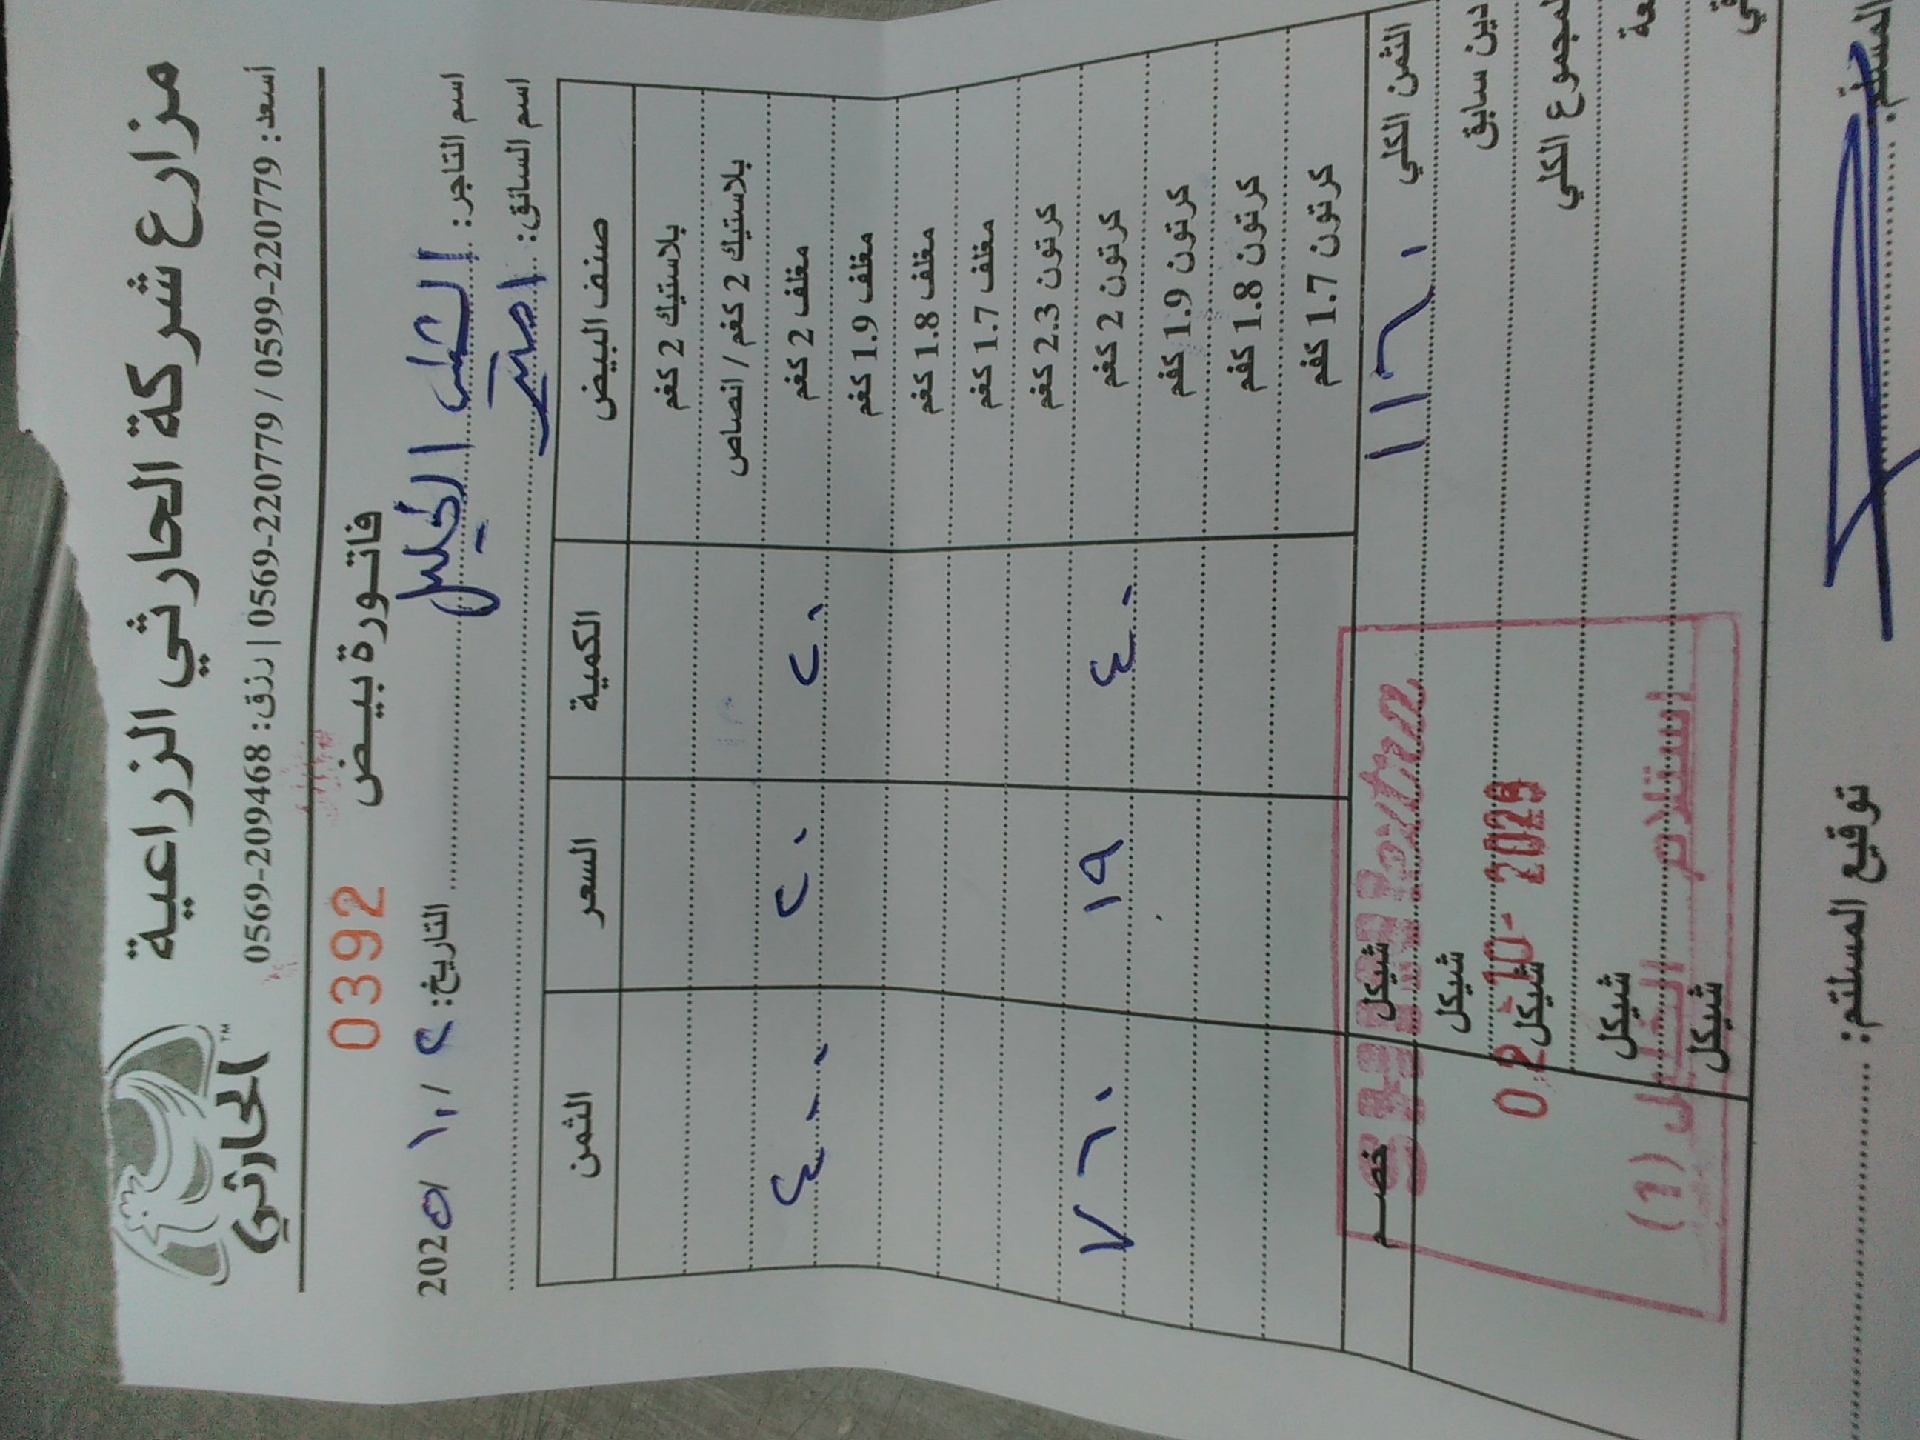 مزارع شركة الحارثي الزراعية
الحارثي™
أسعد: 0599-220779 / 0569-220779 | رزق: 0569-209468
فاتورة بيض
0392
اسم التاجر: الشمل الجليل
التاريخ: ٢ / ١٠ / 202٥
اسم السائق:
صنف البيض الكمية السعر الثمن
بلاستيك 2 كغم
بلاستيك 2 كغم / انصاص
مغلف 2 كغم ٢٠ ٢٠ ٤٠٠
مغلف 1.9 كغم
مغلف 1.8 كغم
مغلف 1.7 كغم
كرتون 2.3 كغم
كرتون 2 كغم ٤٠ ١٩ ٧٦٠
كرتون 1.9 كغم
كرتون 1.8 كغم
كرتون 1.7 كغم
الثمن الكلي ١١٦٠ شيكل خصم
دين سابق شيكل
المجموع الكلي شيكل
شيكل
شيكل
extra
02-10-2025
استلام
(1)
توقيع المستلم: